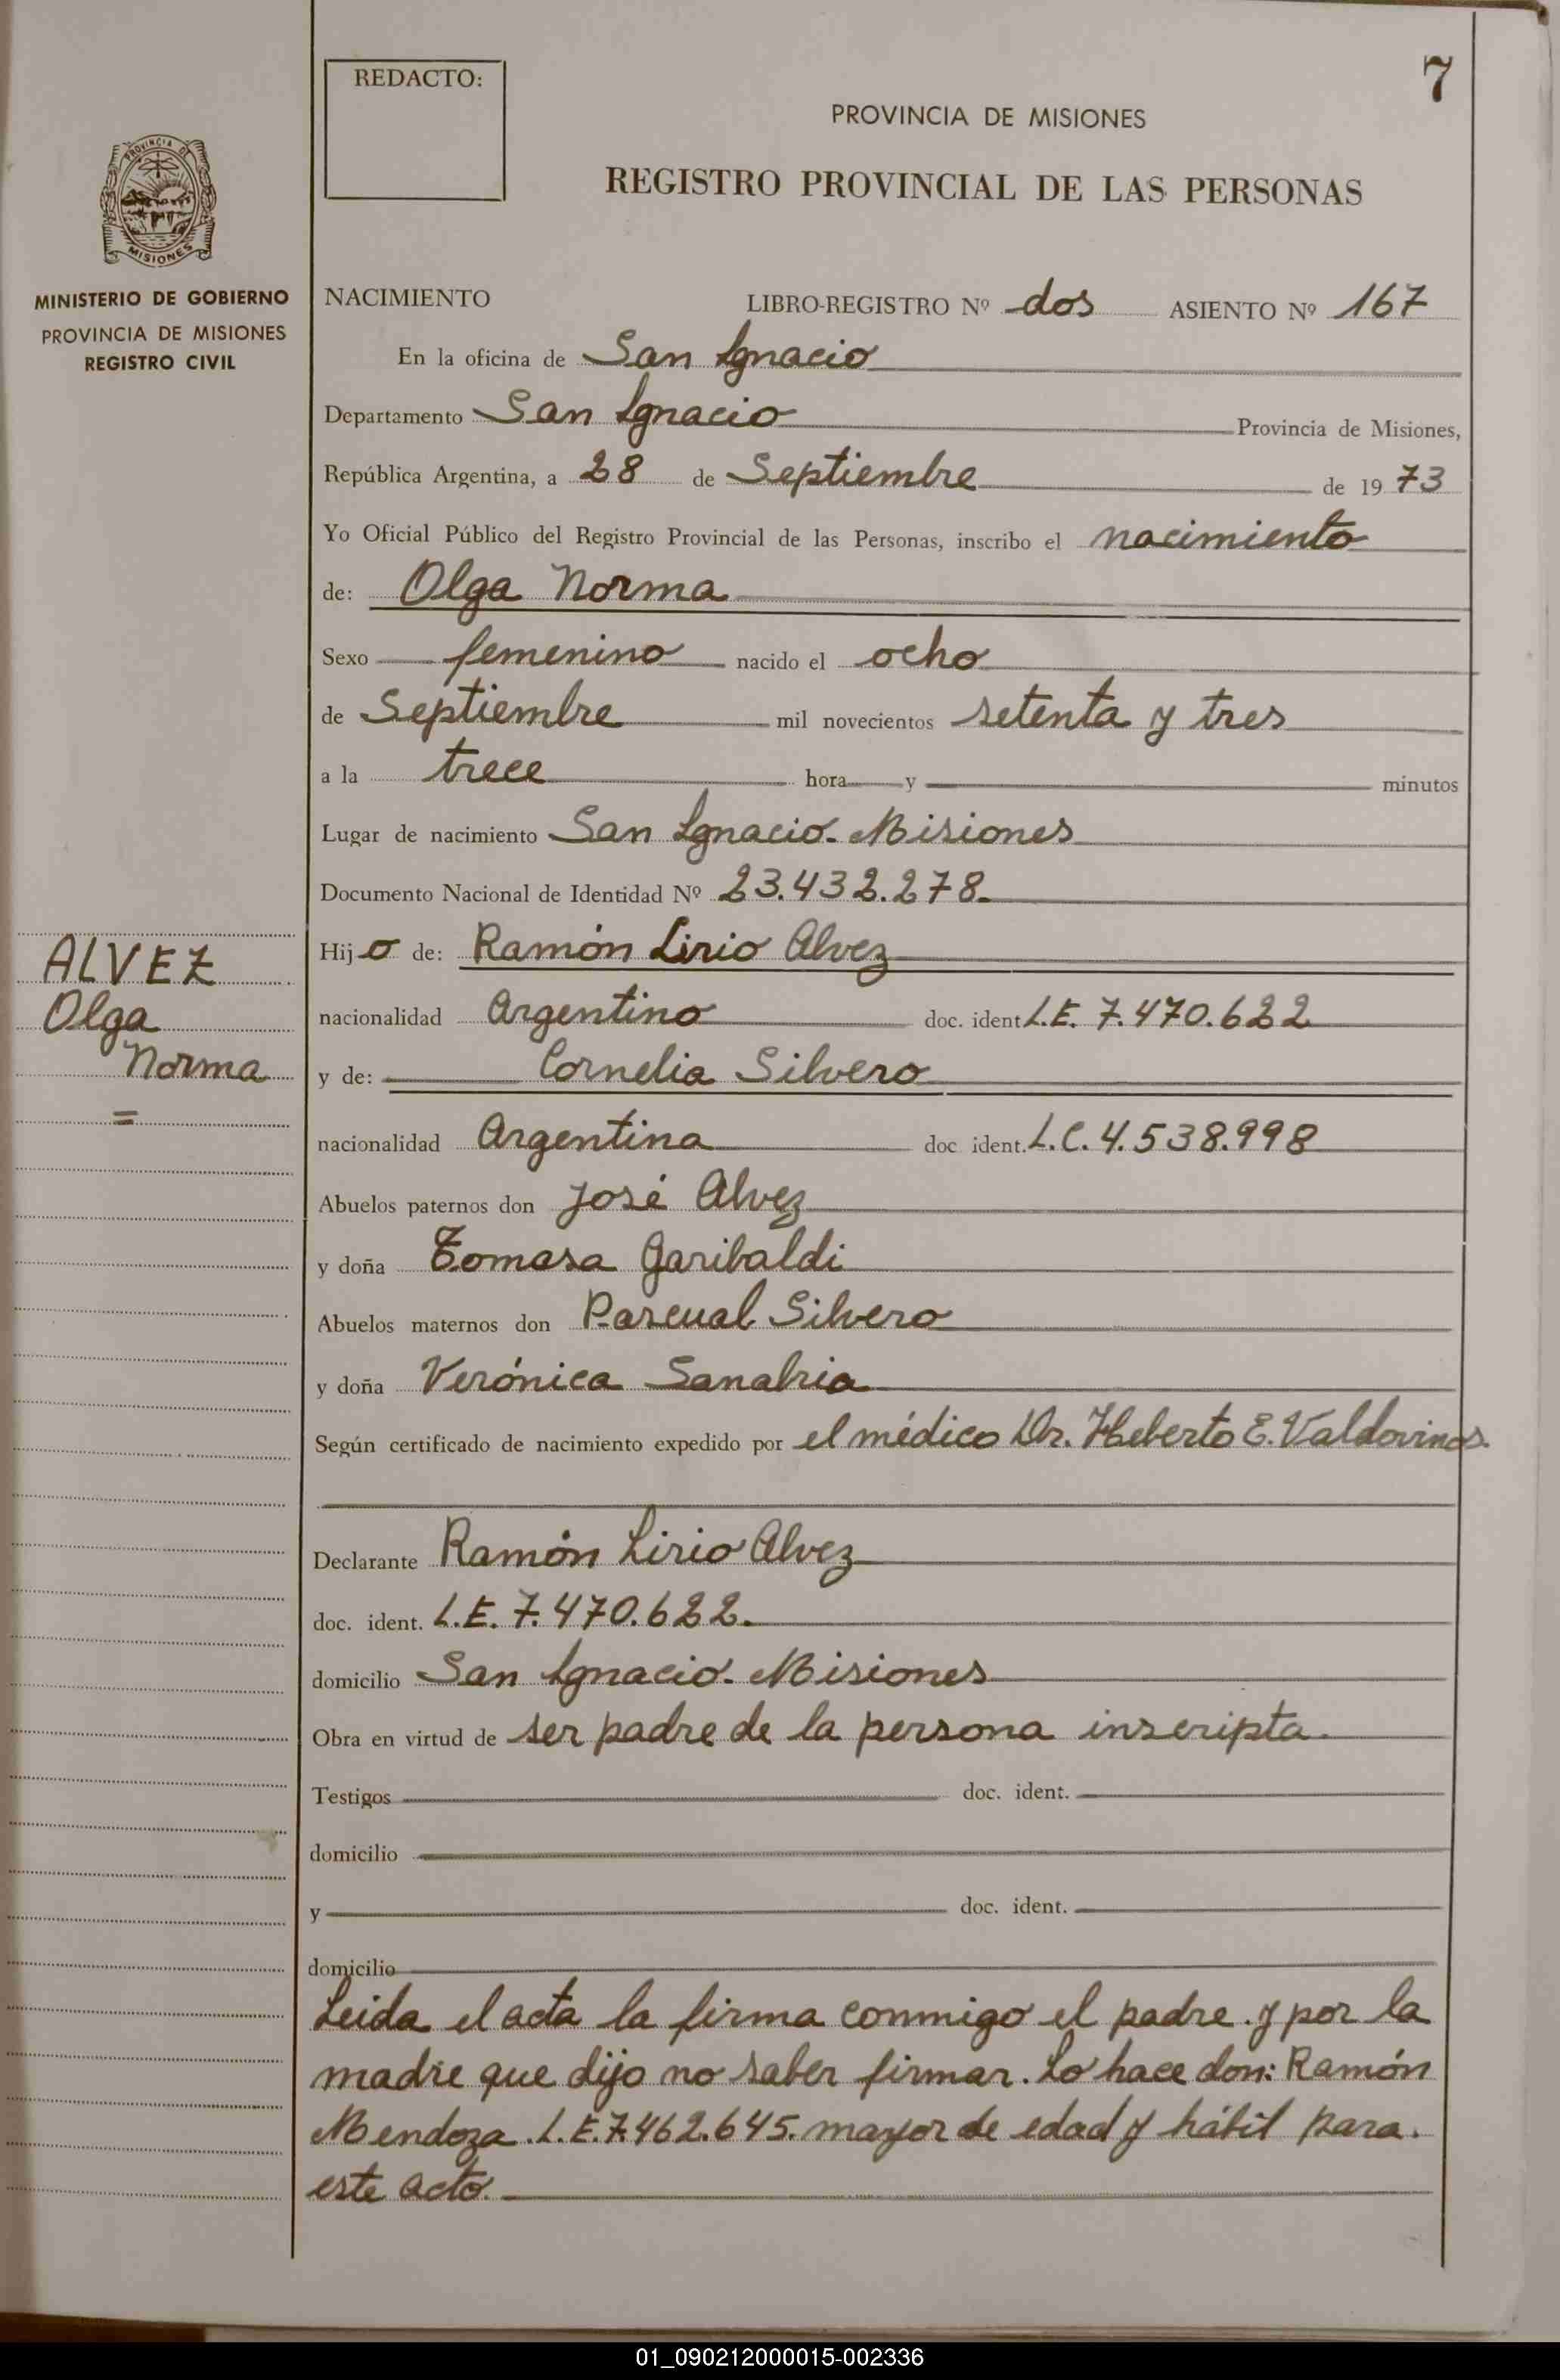 REDACTO:
7
PROVINCIA DE MISIONES
REGISTRO PROVINCIAL DE LAS PERSONAS
PROVINCIA DE
MISIONES
MINISTERIO DE GOBIERNO
PROVINCIA DE MISIONES
REGISTRO CIVIL
NACIMIENTO LIBRO-REGISTRO Nº dos ASIENTO Nº 167
En la oficina de San Ignacio
Departamento San Ignacio Provincia de Misiones,
República Argentina, a 28 de Septiembre de 1973
Yo Oficial Público del Registro Provincial de las Personas, inscribo el nacimiento
de: Olga Norma
Sexo femenino nacido el ocho
de Septiembre mil novecientos setenta y tres
a la trece hora y minutos
Lugar de nacimiento San Ignacio. Misiones
Documento Nacional de Identidad Nº 23.432.278.
ALVEZ
Olga
Norma
=
Hijo de: Ramón Lirio Alvez
nacionalidad Argentino doc. ident L.E. 7.470.622
y de: Cornelia Silvero
nacionalidad Argentina doc ident. L.C. 4.538.998
Abuelos paternos don José Alvez
y doña Tomasa Garibaldi
Abuelos maternos don Pascual Silvero
y doña Verónica Sanabria
Según certificado de nacimiento expedido por el médico Dr. Heberto E. Valdovinos.
Declarante Ramón Lirio Alvez
doc. ident. L.E. 7.470.622.
domicilio San Ignacio. Misiones
Obra en virtud de ser padre de la persona inscripta.
Testigos doc. ident.
domicilio
y doc. ident.
domicilio
Leida el acta la firma conmigo el padre. y por la
madre que dijo no saber firmar. Lo hace don: Ramón
Mendoza. L.E. 7.462.645. mayor de edad y hábil para.
este acto.
01_090212000015-002336